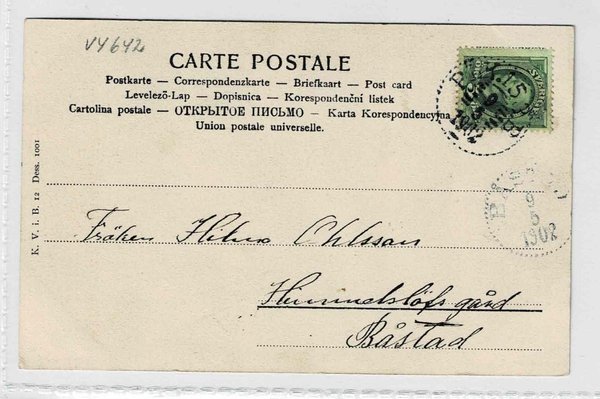 V4642
CARTE POSTALE
Postkarte — Correspondenzkarte — Briefkaart — Post card
Levelező-Lap — Dopisnica — Korespondenční listek
Cartolina postale — ОТКРЫТОЕ ПИСЬМО — Karta Korespondencyjna
Union postale universelle.
K. V. i. B. 12 Dess. 1001
1902
BÅSTAD
9
5
1902
Fröken Hilma Ohlsson
Hemmeslöfs gård
Båstad